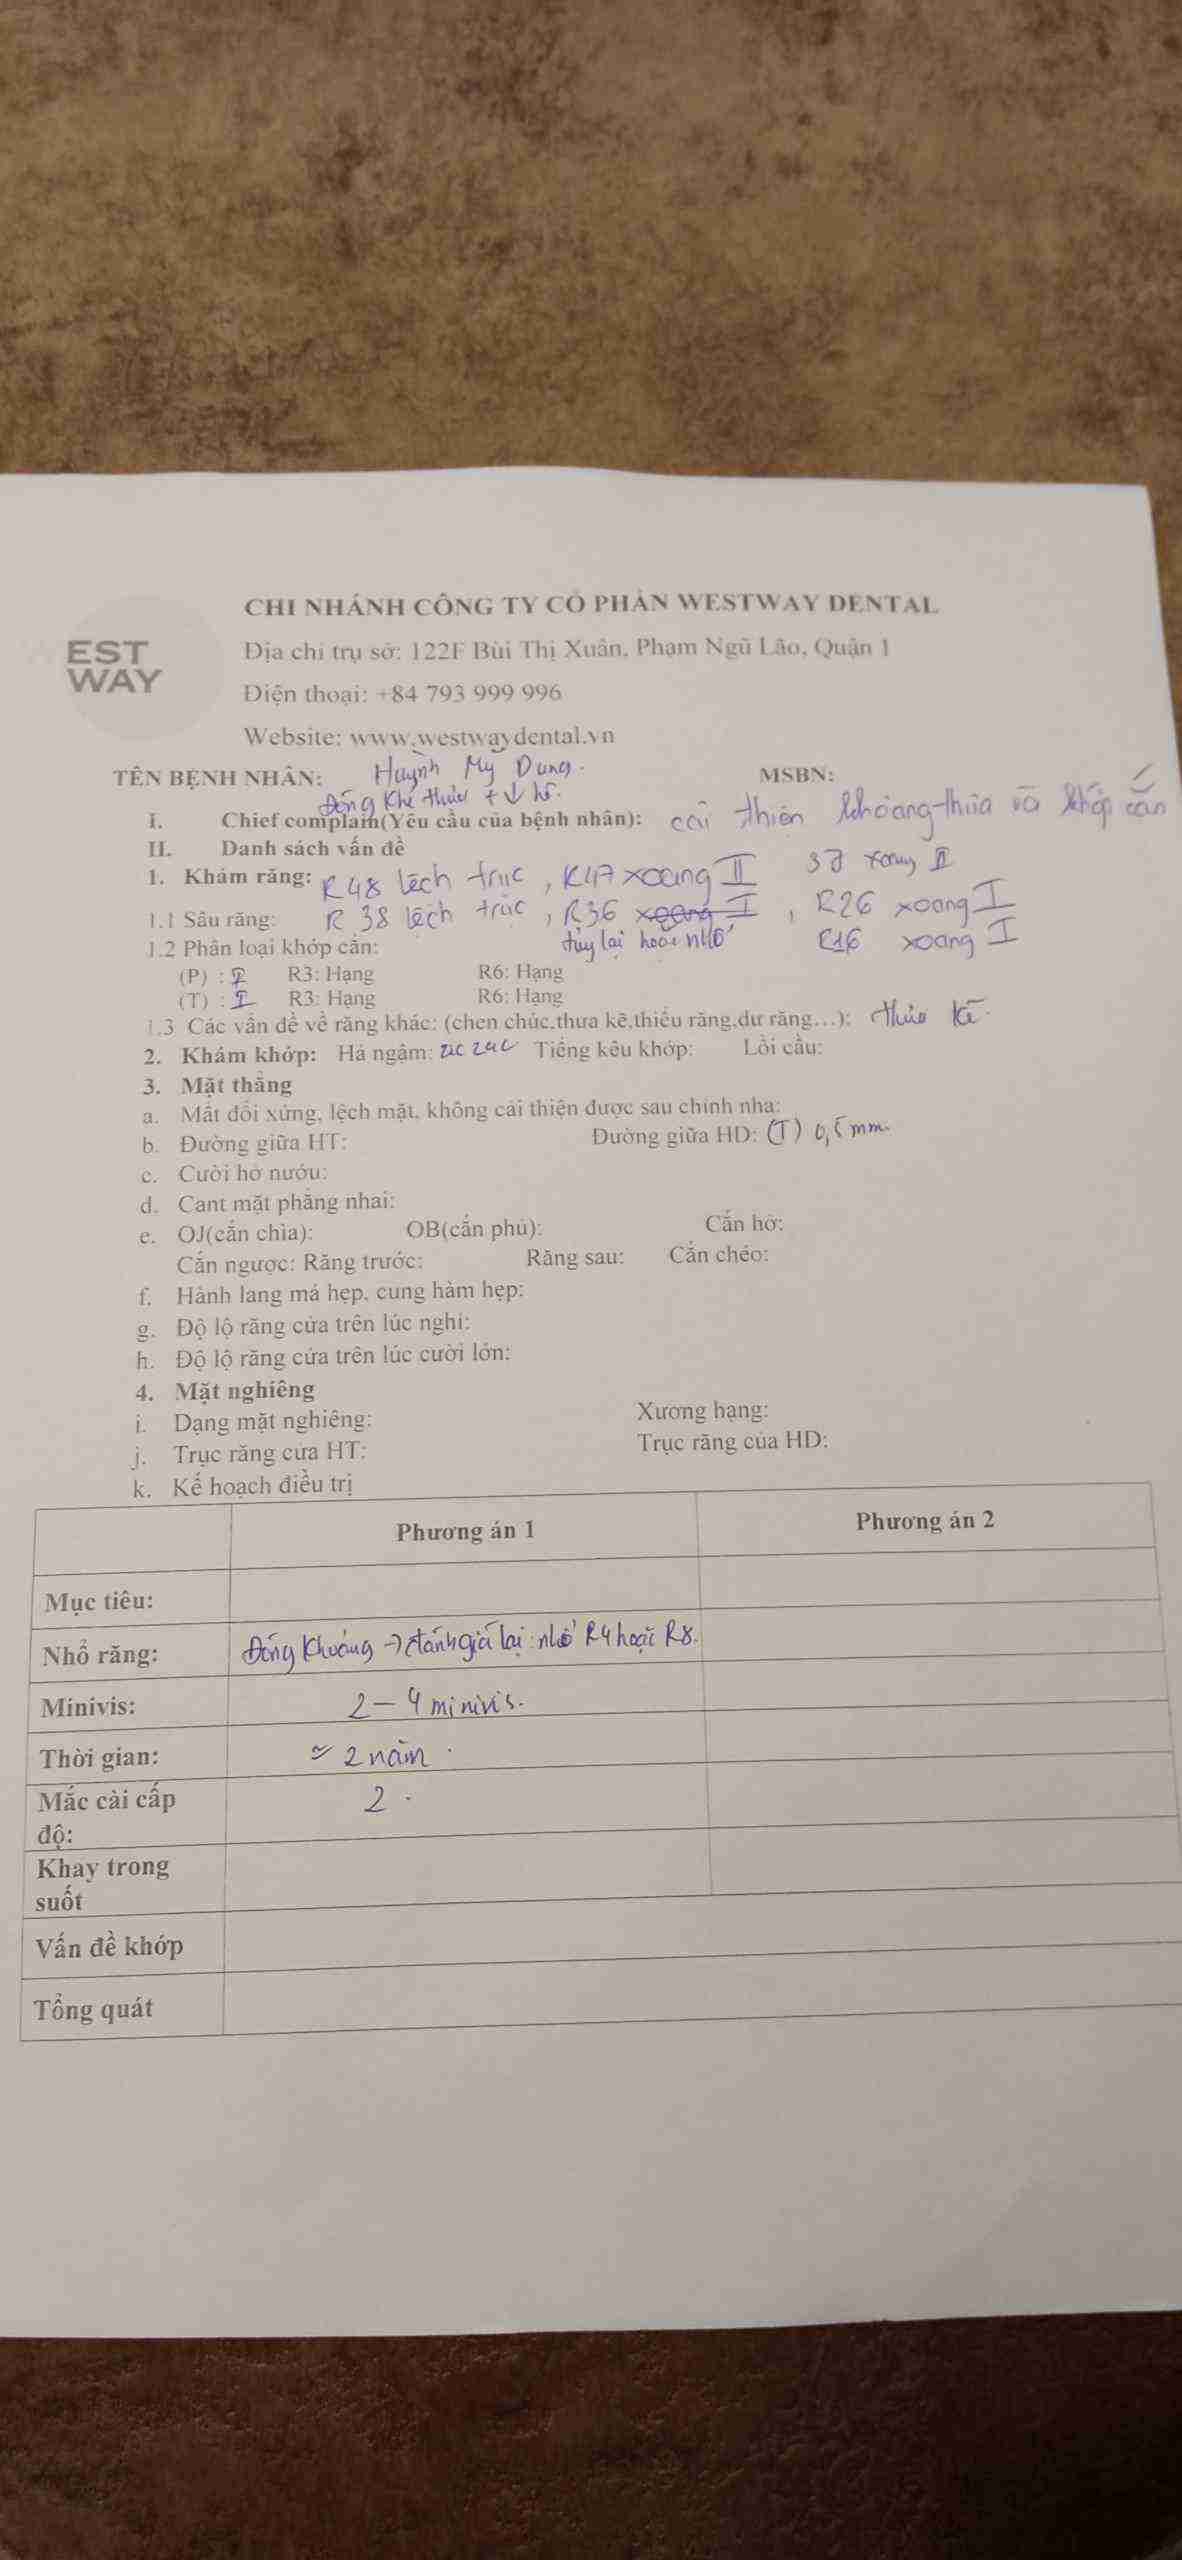 CHI NHÁNH CÔNG TY CỔ PHẦN WESTWAY DENTAL
WEST
WAY
Địa chỉ trụ sở: 122F Bùi Thị Xuân, Phạm Ngũ Lão, Quận 1
Điện thoại: +84 793 999 996
Website: www.westwaydental.vn
TÊN BỆNH NHÂN: Huỳnh Mỹ Dung. MSBN:
Đóng khe thưa + ↓ hô.
I. Chief complain(Yêu cầu của bệnh nhân): cải thiện khoảng thưa và khớp cắn
II. Danh sách vấn đề
1. Khám răng: R48 lệch trục, R47 xoang II 37 xoang II
1.1 Sâu răng: R38 lệch trục, R36 xoang I, R26 xoang I
tủy lại hoặc nhổ R16 xoang I
1.2 Phân loại khớp cắn:
(P) : I R3: Hạng R6: Hạng
(T) : I R3: Hạng R6: Hạng
1.3 Các vấn đề về răng khác: (chen chúc,thưa kẽ,thiếu răng,dư răng...): thưa kẽ.
2. Khám khớp: Há ngậm: zic zac Tiếng kêu khớp: Lồi cầu:
3. Mặt thẳng
a. Mất đối xứng, lệch mặt, không cải thiện được sau chỉnh nha:
b. Đường giữa HT: Đường giữa HD: (T) 0,5mm.
c. Cười hở nướu:
d. Cant mặt phẳng nhai:
e. OJ(cắn chìa): OB(cắn phủ): Cắn hở:
Cắn ngược: Răng trước: Răng sau: Cắn chéo:
f. Hành lang má hẹp, cung hàm hẹp:
g. Độ lộ răng cửa trên lúc nghỉ:
h. Độ lộ răng cửa trên lúc cười lớn:
4. Mặt nghiêng
i. Dạng mặt nghiêng: Xương hạng:
j. Trục răng cửa HT: Trục răng của HD:
k. Kế hoạch điều trị
Phương án 1 Phương án 2
Mục tiêu:
Nhổ răng: Đóng khoảng → đánh giá lại: nhổ R4 hoặc R8.
Minivis: 2 – 4 minivis.
Thời gian: ≃ 2 năm.
Mắc cài cấp 2.
độ:
Khay trong
suốt
Vấn đề khớp
Tổng quát